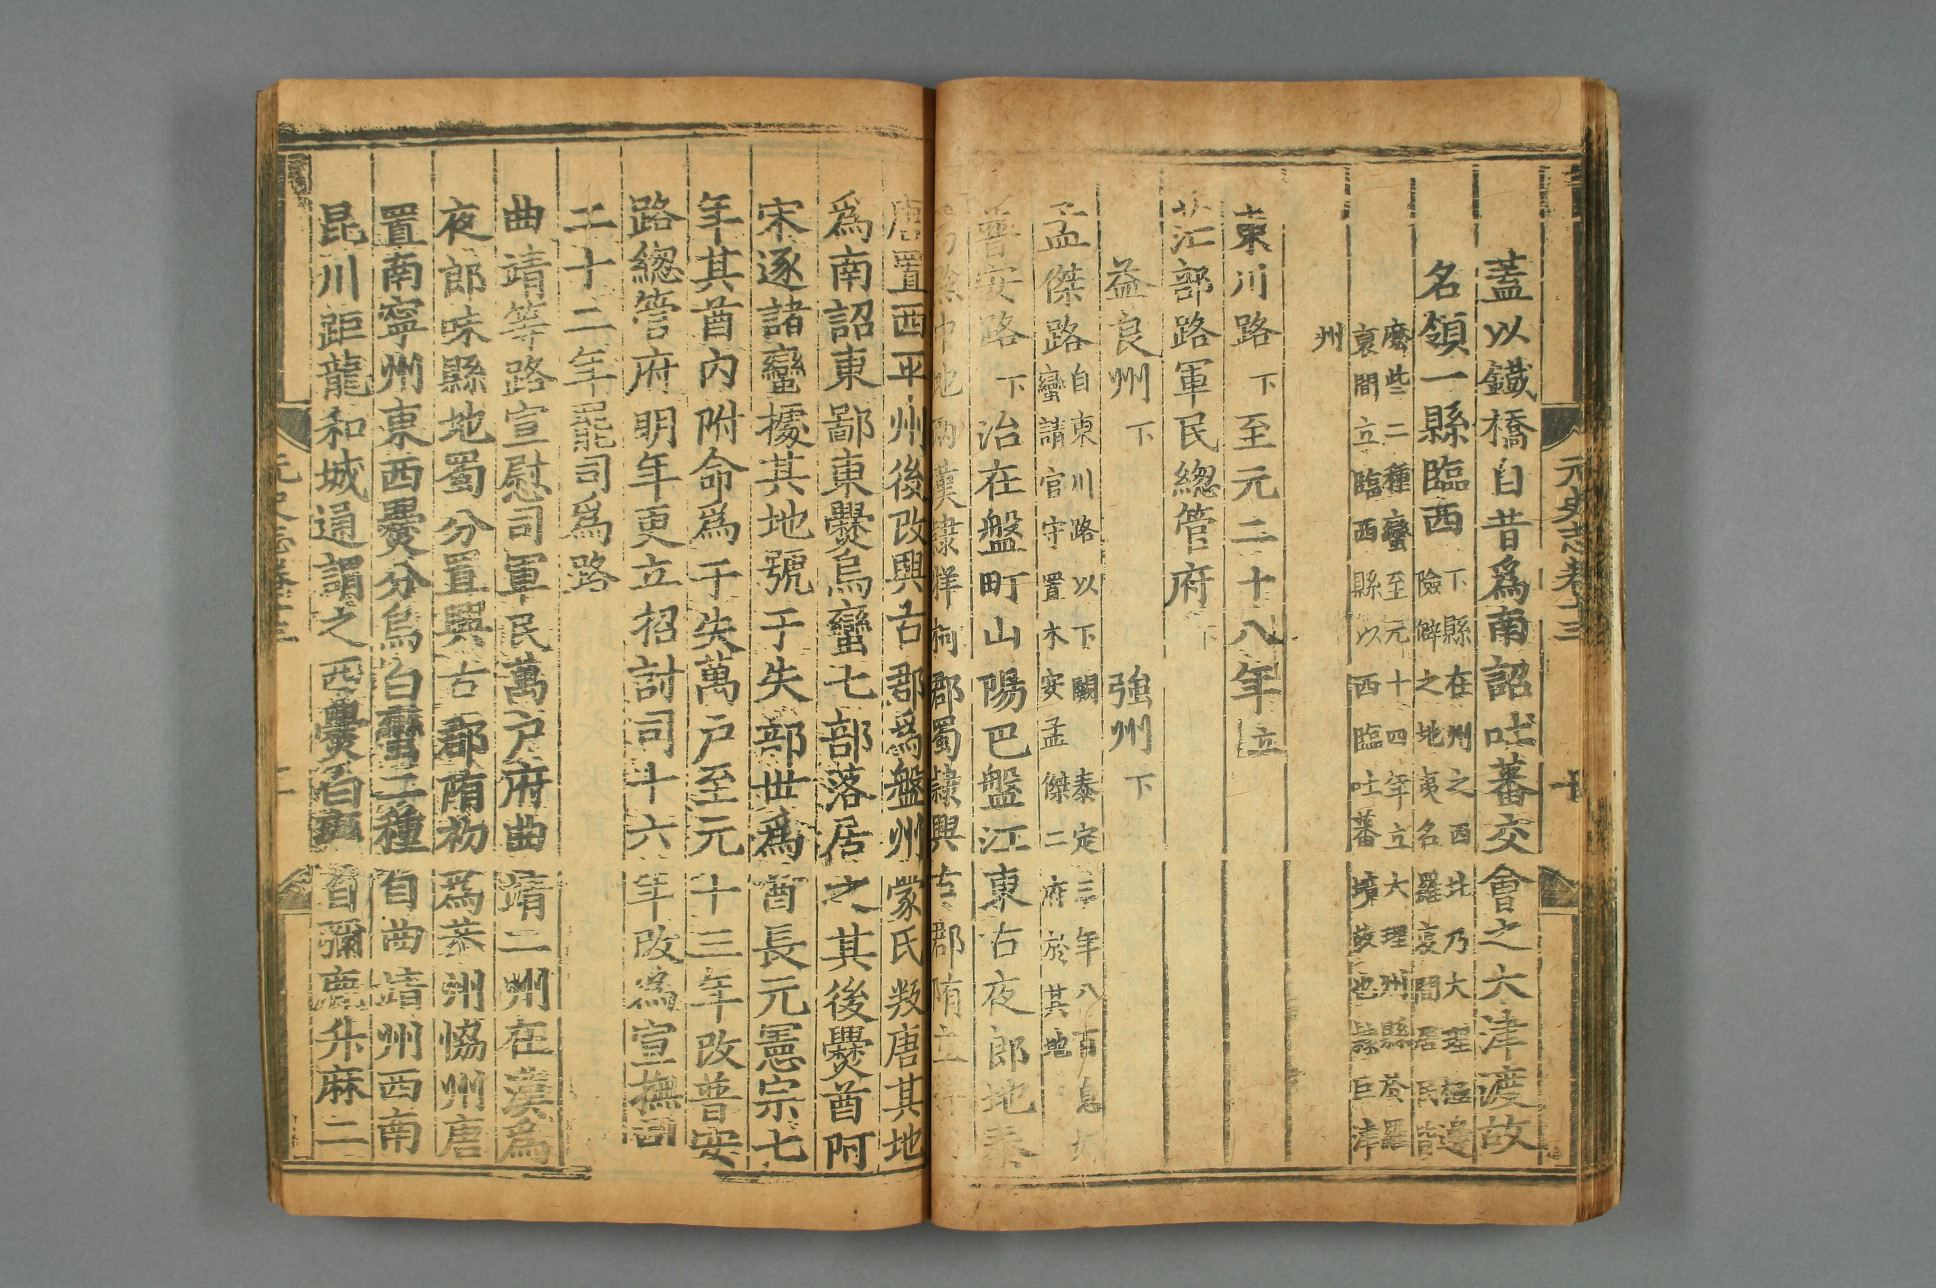 元史志卷十三
蓋以鐵橋自昔爲南詔吐蕃交會之大津渡故
名領一縣臨西下縣在州之西北乃大理極邊
險僻之地夷名羅裒間居民皆
麽些二種蠻至元十四年立大理州縣於羅
裒間立臨西縣以西臨吐蕃境故也縣巨津
州
東川路下至元二十八年立
茫部路軍民緫管府下
益良州下 強州下
孟傑路自東川路以下闕泰定三年八百息婦
蠻請官守置木安孟傑二府於其地
普安路下治在盤町山陽巴盤江東古夜郎地秦
爲黔中地兩漢隸牂柯郡蜀隸興古郡隋立
唐置西平州後改興古郡爲盤州蒙氏叛唐其地
爲南詔東鄙東爨烏蠻七部落居之其後爨酋阿
宋逐諸蠻據其地號于失部世爲酋長元憲宗七
年其酋內附命爲于失萬戶至元十三年改普安
路緫管府明年更立招討司十六年改爲宣撫司
二十二年罷司爲路
曲靖等路宣慰司軍民萬戶府曲靖二州在漢爲
夜郎味縣地蜀分置興古郡隋初爲恭州協州唐
置南寧州東西爨分烏白蠻二種自曲靖州西南
昆川距龍和城通謂之西爨白蠻自彌鹿升麻二
元史志卷十三